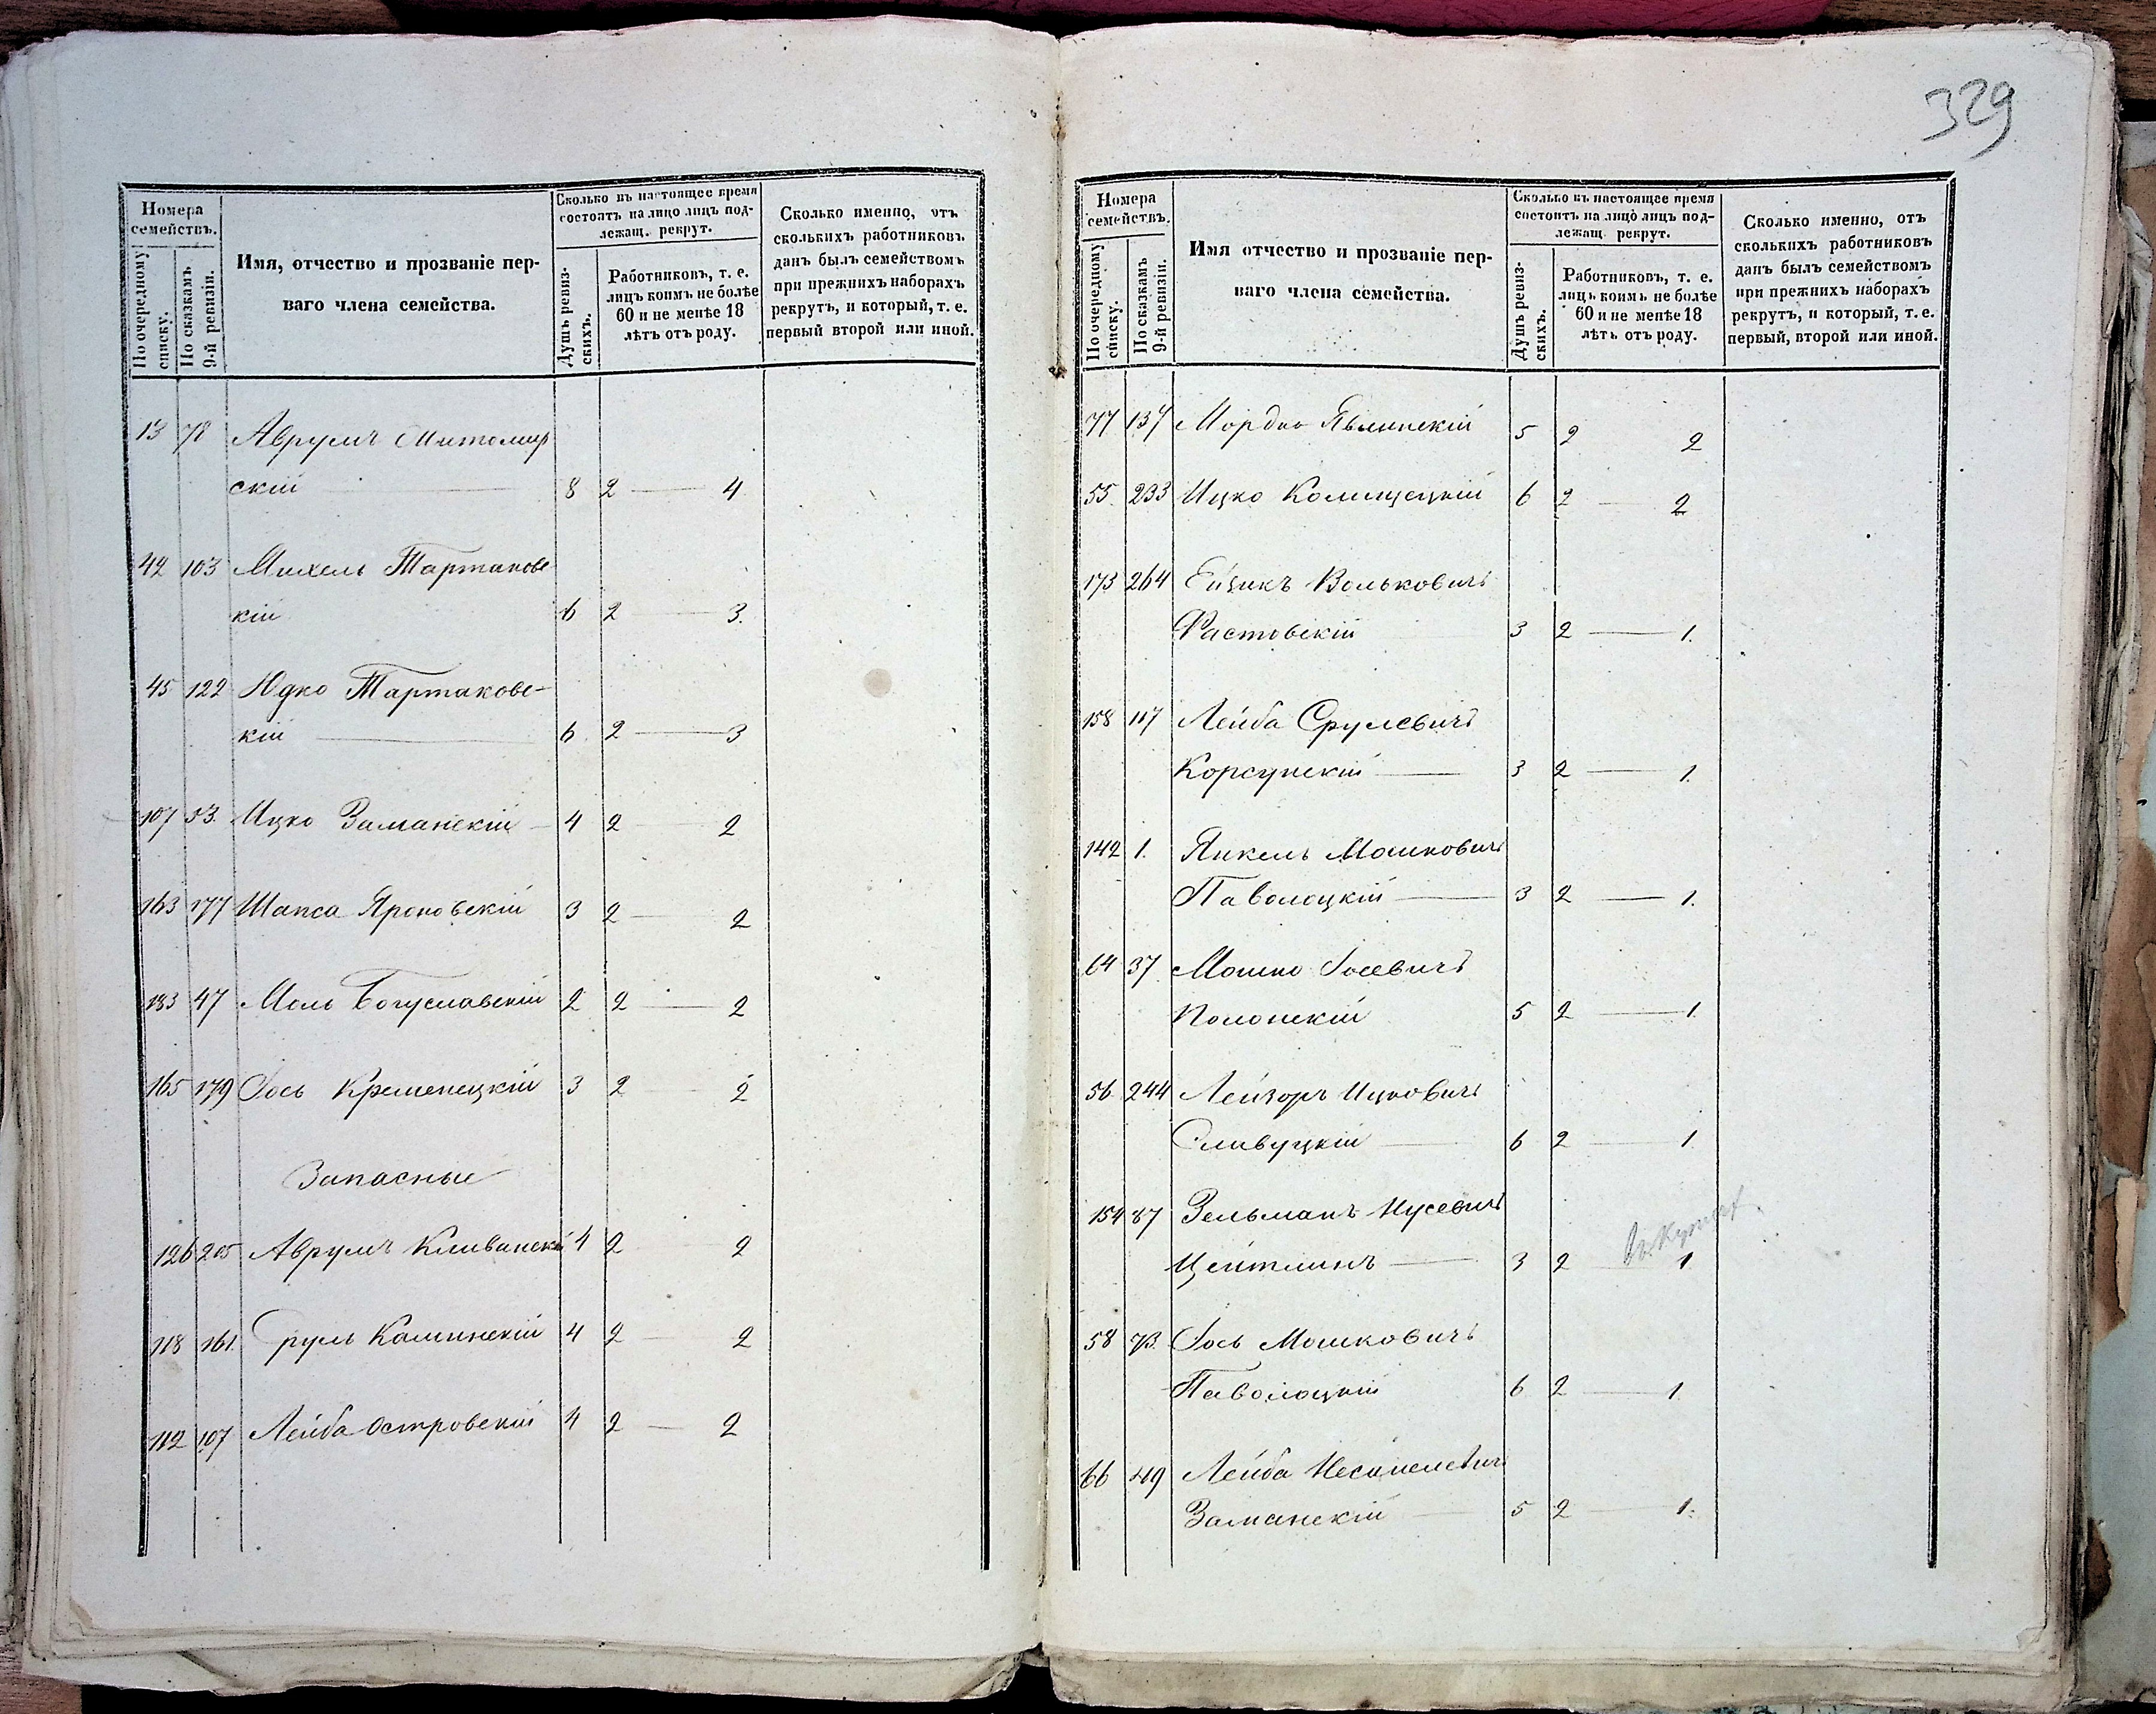 329
Номера
семействъ.
По очередному
списку.
По сказкамъ
9-й ревизіи.
Имя, отчество и прозваніе пер-
ваго члена семейства.
Сколько въ настоящее время
состоитъ на лицо лицъ под-
лежащ. рекрут.
Душъ ревиз-
скихъ.
Работниковъ, т. е.
лицъ коимъ не болѣе
60 и не менѣе 18
лѣтъ отъ роду.
Сколько именно, отъ
сколькихъ работниковъ
данъ былъ семействомъ
при прежнихъ наборахъ
рекрутъ, и который, т. е.
первый второй или иной.
13 78 Аврумъ Житомир
скій 8 2 — 4
42 103 Михель Тартаковс
кій 6 2 — 3.
45 122 Юдко Тартаковс-
кій 6 2 — 3
107 53. Ицко Заманскій 4 2 2
163 177 Шапса Яроновскій 3 2 — 2
183 47 Моль Богуславскій 2 2 — 2
165 179 Іось Кременецкій 3 2 2
Запасные
126 205 Аврумъ Клеванскій 4 2 2
118 161. Сруль Каминскій 4 2 — 2
112 107 Лейба Островскій 4 2 — 2
Номера
семействъ.
По очередному
списку.
По сказкамъ
9-й ревизіи.
Имя отчество и прозваніе пер-
ваго члена семейства.
Сколько въ настоящее время
состоитъ на лицо лицъ под-
лежащ. рекрут.
Душъ ревиз-
скихъ.
Работниковъ, т. е.
лицъ коимъ не болѣе
60 и не менѣе 18
лѣтъ отъ роду.
Сколько именно, отъ
сколькихъ работниковъ
данъ былъ семействомъ
при прежнихъ наборахъ
рекрутъ, и который, т. е.
первый, второй или иной.
77 137 Мордко Явлинскій 5 2 2
55. 233 Ицко 6 2 — 2
173 264 Ейзикъ Вольковичъ
Фастовскій 3 2 — 1.
158 117 Лейба Срулевичъ
Корсунскій — 3 2 — 1.
142 1. Янкель Мошковичъ
Паволоцкій — 3 2 — 1.
64 37 Мошко Іосевичъ
Полонскій 5 2 — 1.
56. 244 Лейзоръ Ицковичъ
Славуцкій — 6 2 — 1.
154 87 Зельманъ Нусевичъ
Цейтлинъ — 3 2 1
58 73. Іось Мошковичъ
Паволоцкій 6 2 — 1.
66 49 Лейба
Заманскій — 5 2 — 1.